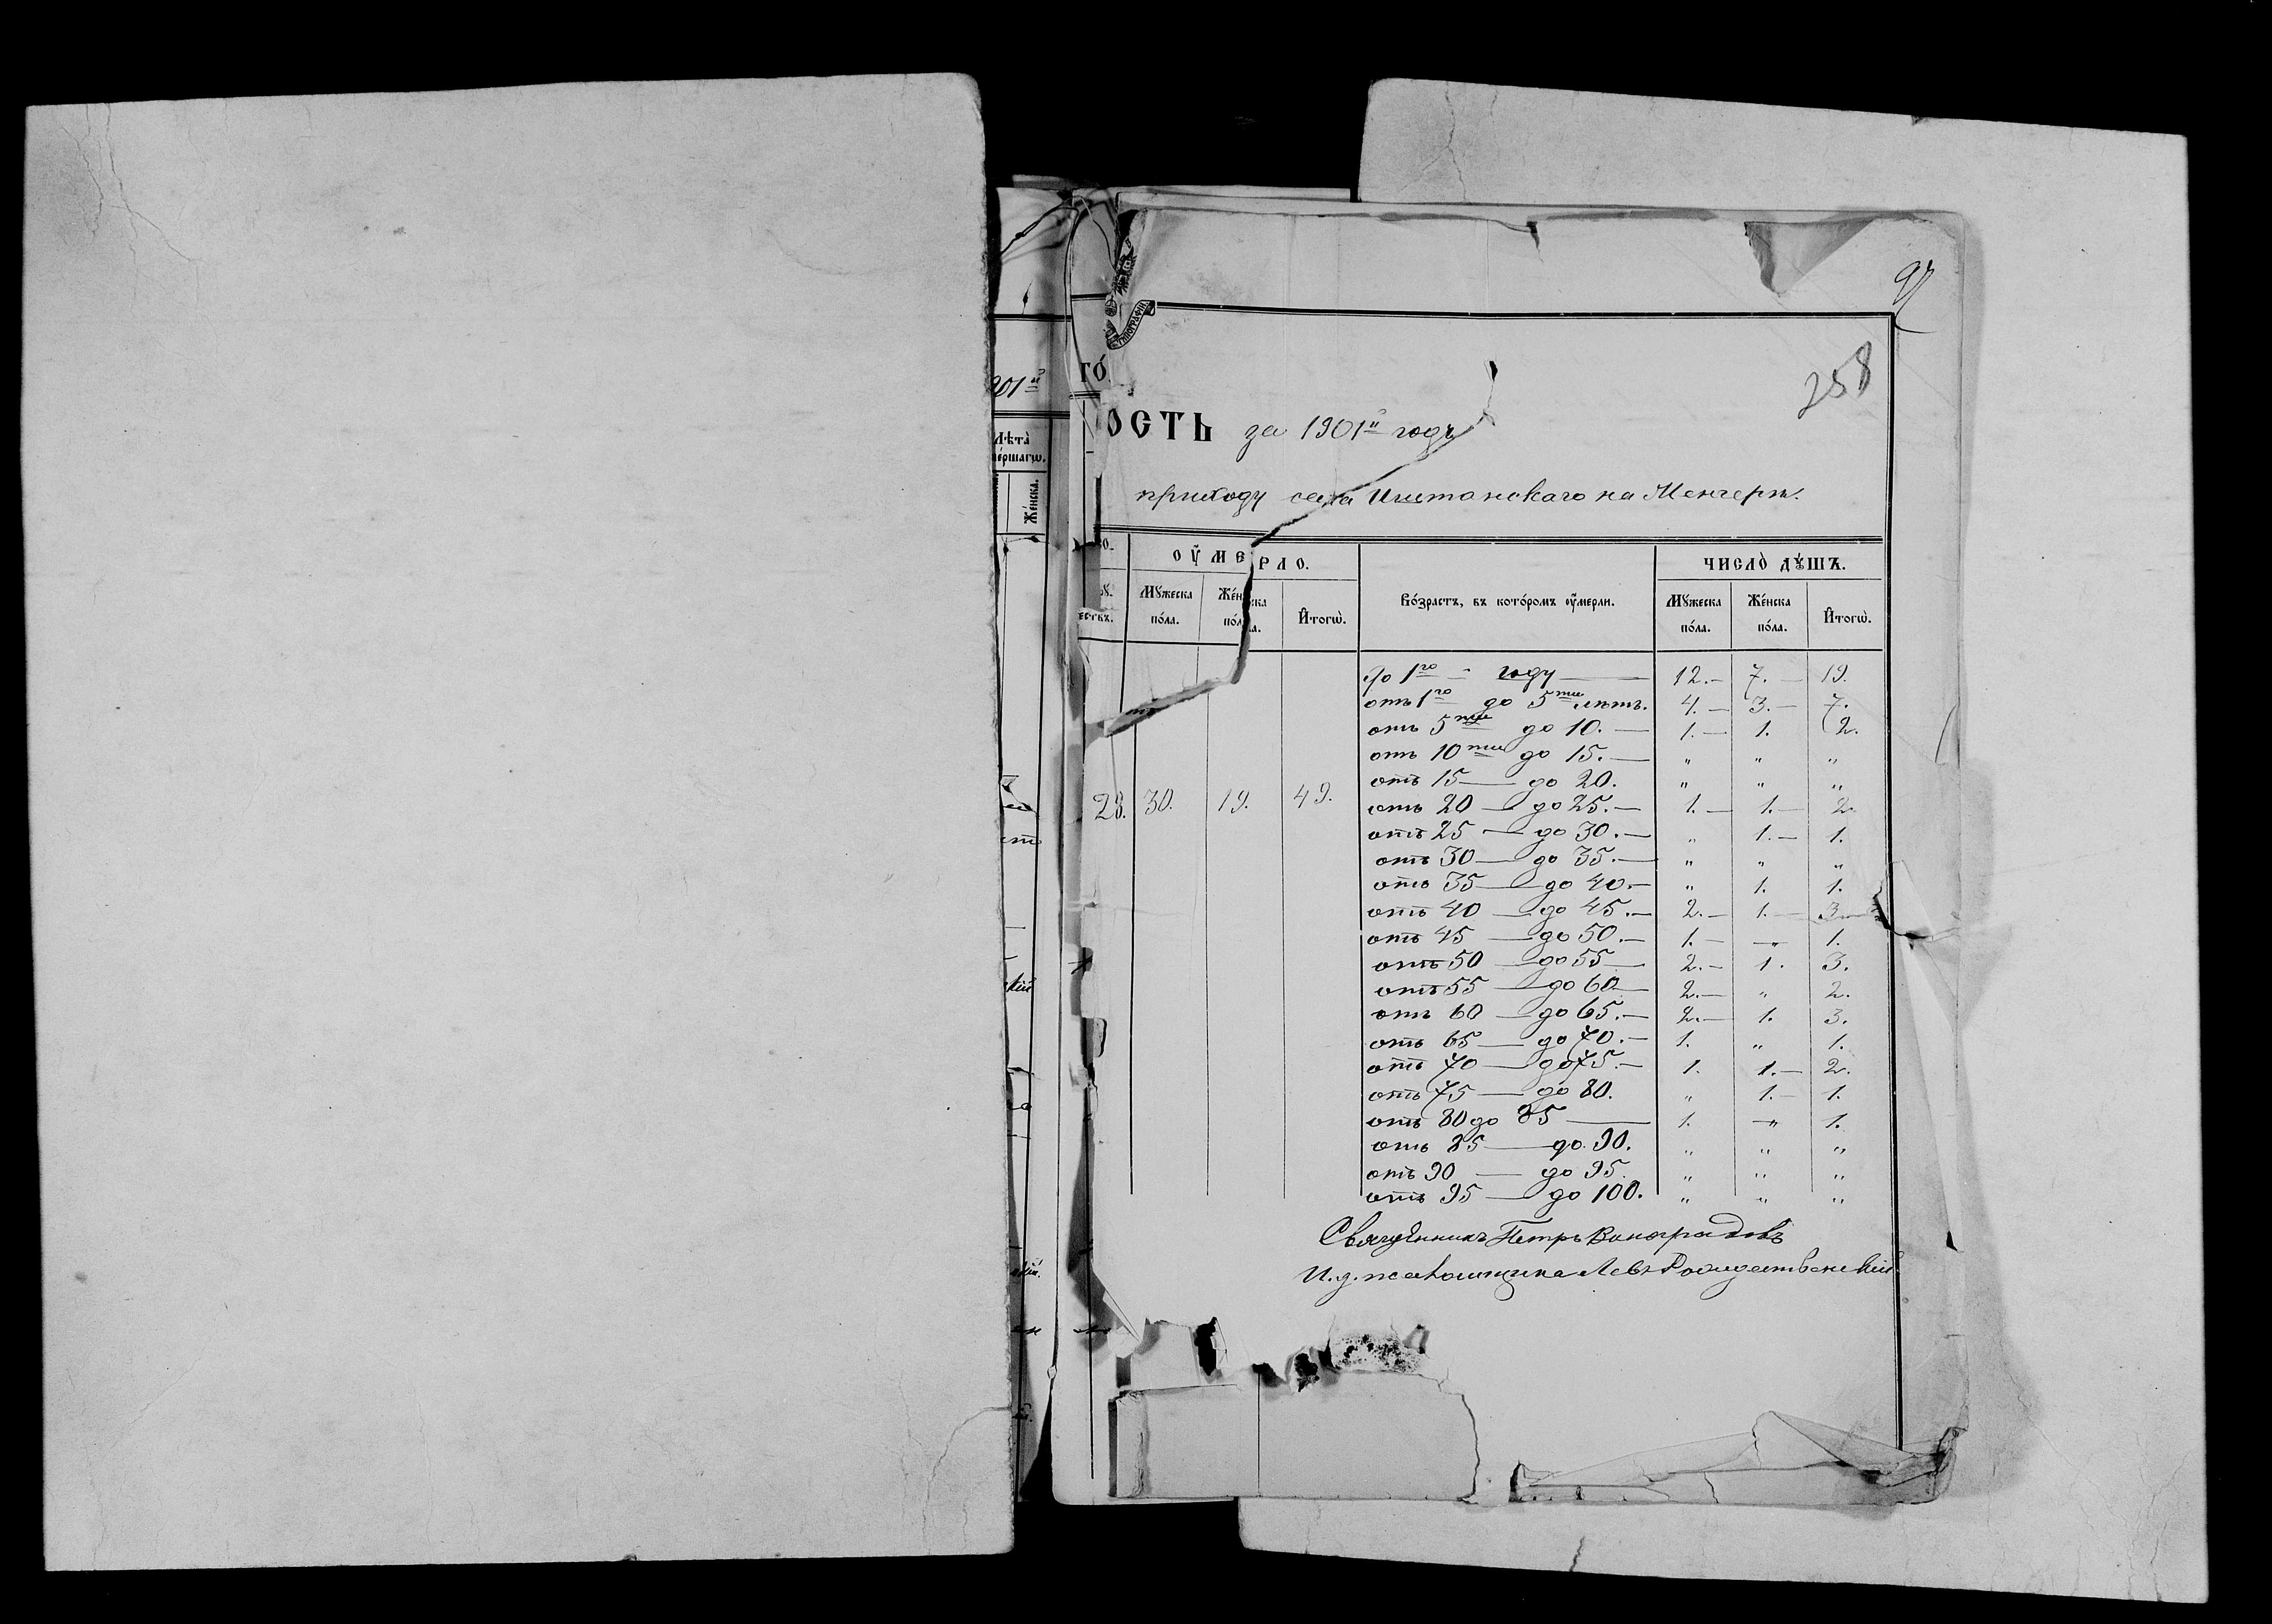 97
258
201й
Лѣта
ме́ршагѡ.
Же́нска.
ТИПОГРАФІИ
ГО́
ОСТЬ за 1901й годъ
приходу села Иштановскаго на Менчерѣп.
ОУМЕРЛО.
ЧИСЛО̀ ДꙊ́ШЪ.
Мꙋжеска по́ла.
Же́нска по́ла.
И҆тогѡ̀.
Во́зрастъ, въ кото́ромъ оумерли.
Мꙋжеска по́ла.
Же́нска по́ла.
И҆тогѡ̀.
до 1го - году — 12.— 7. — 19.
отъ 1го до 5ти лѣтъ. 4. — 3. — 7.
отъ 5ти до 10. — 1. — 1. 2.
отъ 10ти до 15. — " " "
отъ 15 — до 20. " " "
28. 30. 19. 49.
отъ 20 — до 25. — 1. — 1. — 2.
отъ 25 — до 30. — " 1. — 1.
отъ 30 — до 35. — " " "
отъ 35 — до 40. — " 1. 1.
отъ 40 — до 45. — 2. — 1. — 3. —
отъ 45 — до 50. — 1. — " 1.
отъ 50 — до 55 — 2. — 1. 3.
отъ 55 — до 60 — 2. — " 2.
отъ 60 — до 65. — 2. — 1. 3.
отъ 65 — до 70. — 1. " 1.
отъ 70 — до 75. — 1. 1. — 2.
отъ 75 — до 80. " 1. — 1.
отъ 80 до 85 — 1. " 1.
отъ 85 — до 90. " " "
отъ 90 — до 95. " " "
отъ 95 — до 100. " " "
Священникъ Петръ Виноградовъ
И. д. псаломщика Левъ Рождественскій